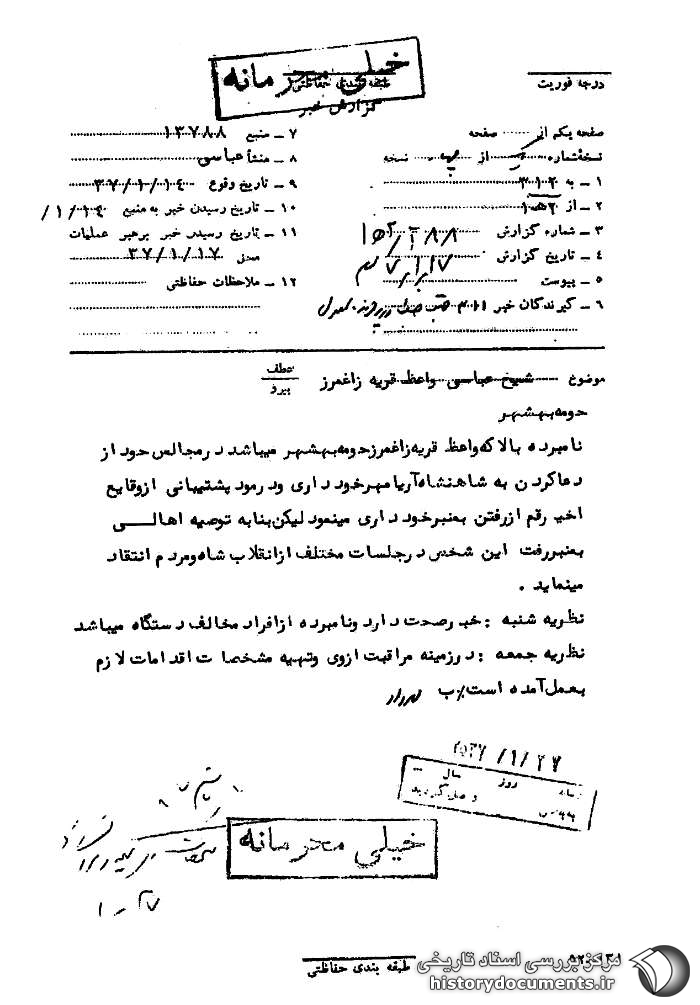 خیلی محرمانه
درجه فوریت
طبقه بندی حفاظتی
گزارش خبر
صفحه یکم از ...... صفحه
نسخه شماره ...... از ...... نسخه
۱ ـ به ۳۱۲
۲ ـ از ۱ه۲
۳ ـ شماره گزارش
۴ ـ تاریخ گزارش
۵ ـ پیوست
۶ ـ گیرندگان خبر
۷ ـ منبع ۱۳۷۸۸
۸ ـ منشأ عباسی
۹ ـ تاریخ وقوع ۳۷/۱/۱۴
۱۰ ـ تاریخ رسیدن خبر به منبع ۱/۱۴/
۱۱ ـ تاریخ رسیدن خبر برهبر عملیات
محل ۳۷/۱/۱۷
۱۲ ـ ملاحظات حفاظتی
موضوع شیخ عباسی واعظ قریه زاغمرز
حومه بهشهر
عطف
پیرو
نامبرده بالا که واعظ قریه زاغمرز حومه بهشهر میباشد در مجالس خود از
دعا کردن به شاهنشاه آریامهر خود داری و در مود پشتیبانی از وقایع
اخیر رقم از رفتن بمنبر خود داری مینمود لیکن بنا به توصیه اهالی
بمنبر رفت این شخص در جلسات مختلف از انقلاب شاه و مردم انتقاد
مینماید .
نظریه شنبه : خبر صحت دارد و نامبرده از افراد مخالف دستگاه میباشد
نظریه جمعه : در زمینه مراقبت از وی و تهیه مشخصات اقدامات لازم
بعمل آمده است / ب
۱/۲۷
روز
سال
خیلی محرمانه
۲۷-۱
طبقه بندی حفاظتی
مرکز بررسی اسناد تاریخی
historydocuments.ir